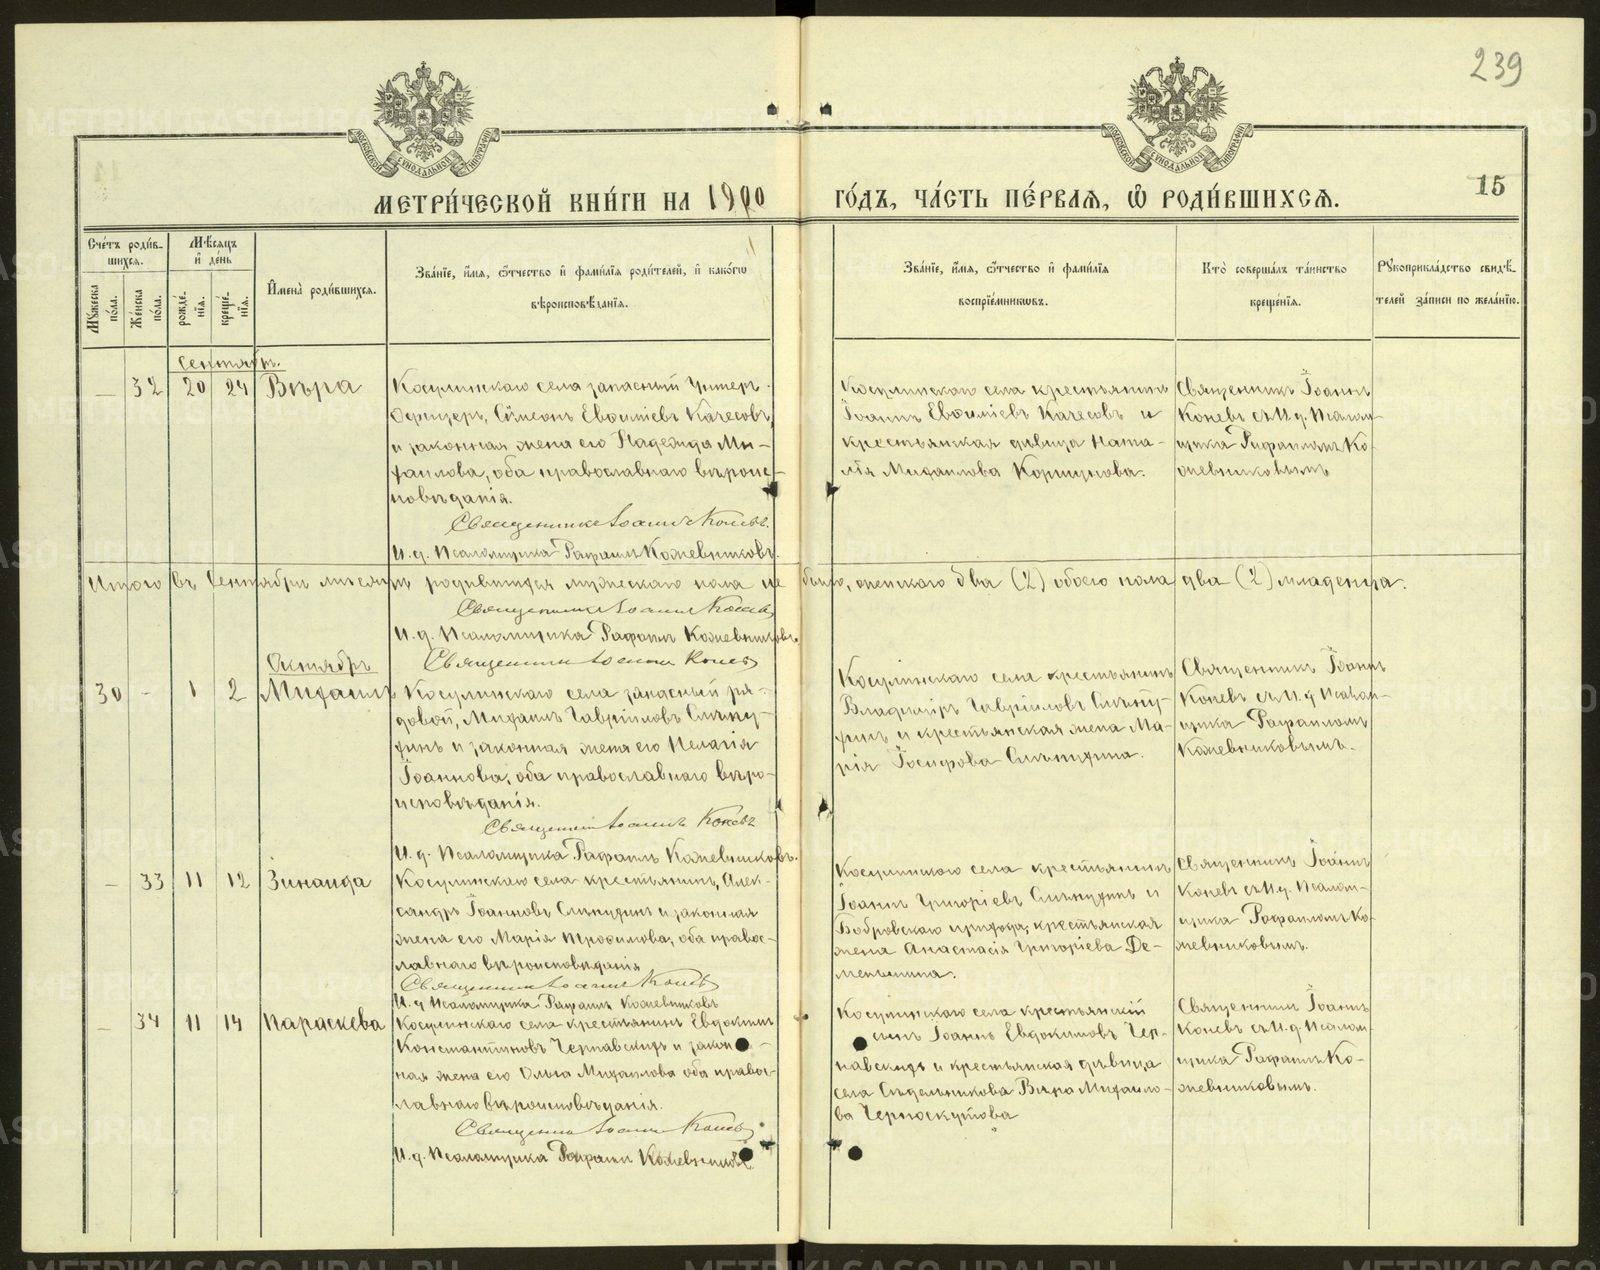 239
МЕТРИ́ЧЕСКОЙ КНИ́ГИ НА 1900 ГО́ДЪ, ЧА́СТЬ ПЕ́РВАЯ, Ѡ҆ РОДИ́ВШИХСѦ.
15
Сче́тъ роди́в-
шихсѧ.
Мꙋ́жеска по́ла.
Же́нска по́ла.
Мѣ́сѧцъ и҆ де́нь
рожде́-нїѧ.
креще́-нїѧ.
И҆мена̀ роди́вшихсѧ.
Зва́нїе, и҆́мѧ, ѻ҆́тчество и҆ фами́лїѧ роди́телей, и҆ како́гѡ
вѣроисповѣ́данїѧ.
Зва́нїе, и҆́мѧ, ѻ҆́тчество и҆ фами́лїѧ
воспрїе́мниковъ.
Кто̀ соверша́лъ та́инство
креще́нїѧ.
Рꙋкоприкла́дство свидѣ́-
телей за́писи по жела́нїю.
Сентябрь.
— 32 20 24 Вѣра
Косулинскаго села запасный Унтер-
Офицеръ, Сѵмеонъ Евѳиміевъ Качесовъ,
и законная жена его Надежда Ми-
хаилова, оба православнаго вѣроис-
повѣданія.
Священникъ Іоаннъ Коневъ.
И. д. Псаломщика Рафаилъ Кожевниковъ.
Косулинскаго села крестьянинъ
Іоаннъ Евѳиміевъ Качесовъ и
крестьянская дѣвица Ната-
лія Михаилова Коршунова.
Священникъ Іоаннъ
Коневъ съ И. д. Псалом-
щика Рафаиломъ Ко-
жевниковымъ
Итого въ Сентябрѣ мѣсяцѣ родившихся мужескаго пола не было, женскаго два (2) обоего пола два (2) младенца.
Священникъ Іоаннъ Коневъ
И. д. Псаломщика Рафаилъ Кожевниковъ.
Октябрь
Священникъ Іоаннъ Коневъ
30 - 1 2 Михаилъ
Косулинскаго села запасный ря-
довой, Михаилъ Гавріиловъ Слѣпу-
хинъ и законная жена его Пелагія
Іоаннова, оба православнаго вѣро-
исповѣданія.
Священникъ Іоаннъ Коневъ
И. д. Псаломщика Рафаилъ Кожевниковъ.
Косулинскаго села крестьянинъ
Владиміръ Гавріиловъ Слѣпу-
хинъ и крестьянская жена Ма-
рія Іосифова Слѣпухина.
Священникъ Іоаннъ
Коневъ съ И. д. Псалом-
щика Рафаиломъ
Кожевниковымъ.
— 33 11 12 Зинаида
Косулинскаго села крестьянинъ, Алек-
сандръ Іоанновъ Слѣпухинъ и законная
жена его Марія Трофимова, оба правос-
лавнаго вѣроисповѣданія
Священникъ Іоаннъ Коневъ
И. д. Псаломщика Рафаилъ Кожевниковъ
Косулинскаго села крестьянинъ
Іоаннъ Григоріевъ Слѣпухинъ и
Бобровскаго прихода, крестьянская
жена Анастасія Григоріева Де-
меньшина.
Священникъ Іоаннъ
Коневъ съ И. д. Псалом-
щика Рафаиломъ Ко-
жевниковымъ.
— 34 11 14 Параскева
Косулинскаго села крестьянинъ Евдокимъ
Константиновъ Чернавскихъ и закон-
ная жена его Ольга Михаилова оба правос-
лавнаго вѣроисповѣданія.
Священникъ Іоаннъ Коневъ
И. д. Псаломщика Рафаилъ Кожевниковъ
Косулинскаго села крестьянскій
сынъ Іоаннъ Евдокимовъ Чер-
навскихъ и крестьянская дѣвица
села Сѣдельникова Вѣра Михаило-
ва Черноскутова
Священникъ Іоаннъ
Коневъ съ И. д. Псалом-
щика Рафаилъ Ко-
жевниковымъ.